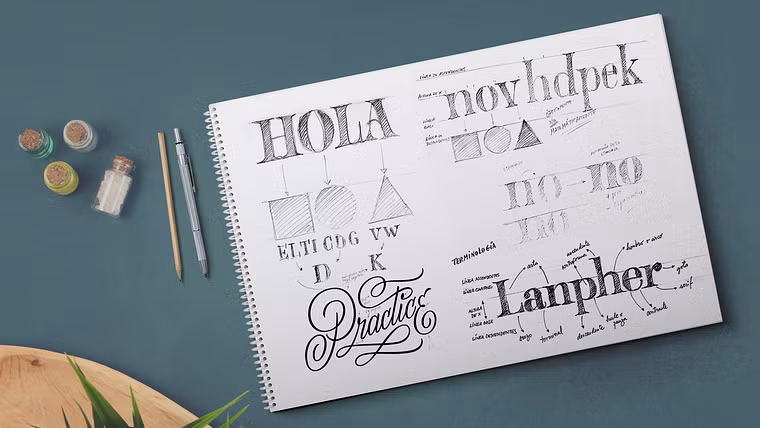 HOLA
ELTI CDG VW
D K
Practice
LÍNEA DE ASCENDENTES
ALTURA DE X
novhdpek
LÍNEA BASE
LÍNEA DE DESCENDENTES
no no
TERMINOLOGÍA
LÍNEA ASCENDENTES
ALTURA DE X
LÍNEA BASE
LÍNEA DESCENDENTES
Lanpher
asta
ascendente
hombro o arco
gota
serif
contraste
bucle o panza
descendente
terminal
brazo